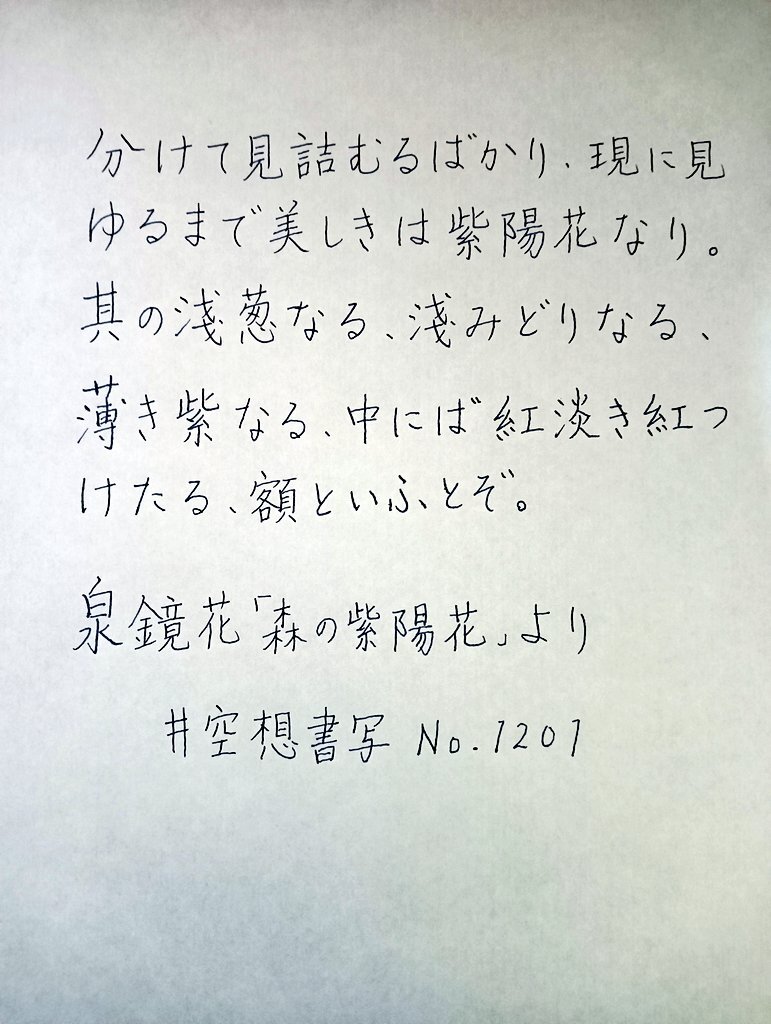 分けて見詰むるばかり、現に見
ゆるまで美しきは紫陽花なり。
其の淺葱なる、淺みどりなる、
薄き紫なる、中には紅淡き紅つ
けたる、額といふとぞ。
泉鏡花「森の紫陽花」より
#空想書写 No.1201